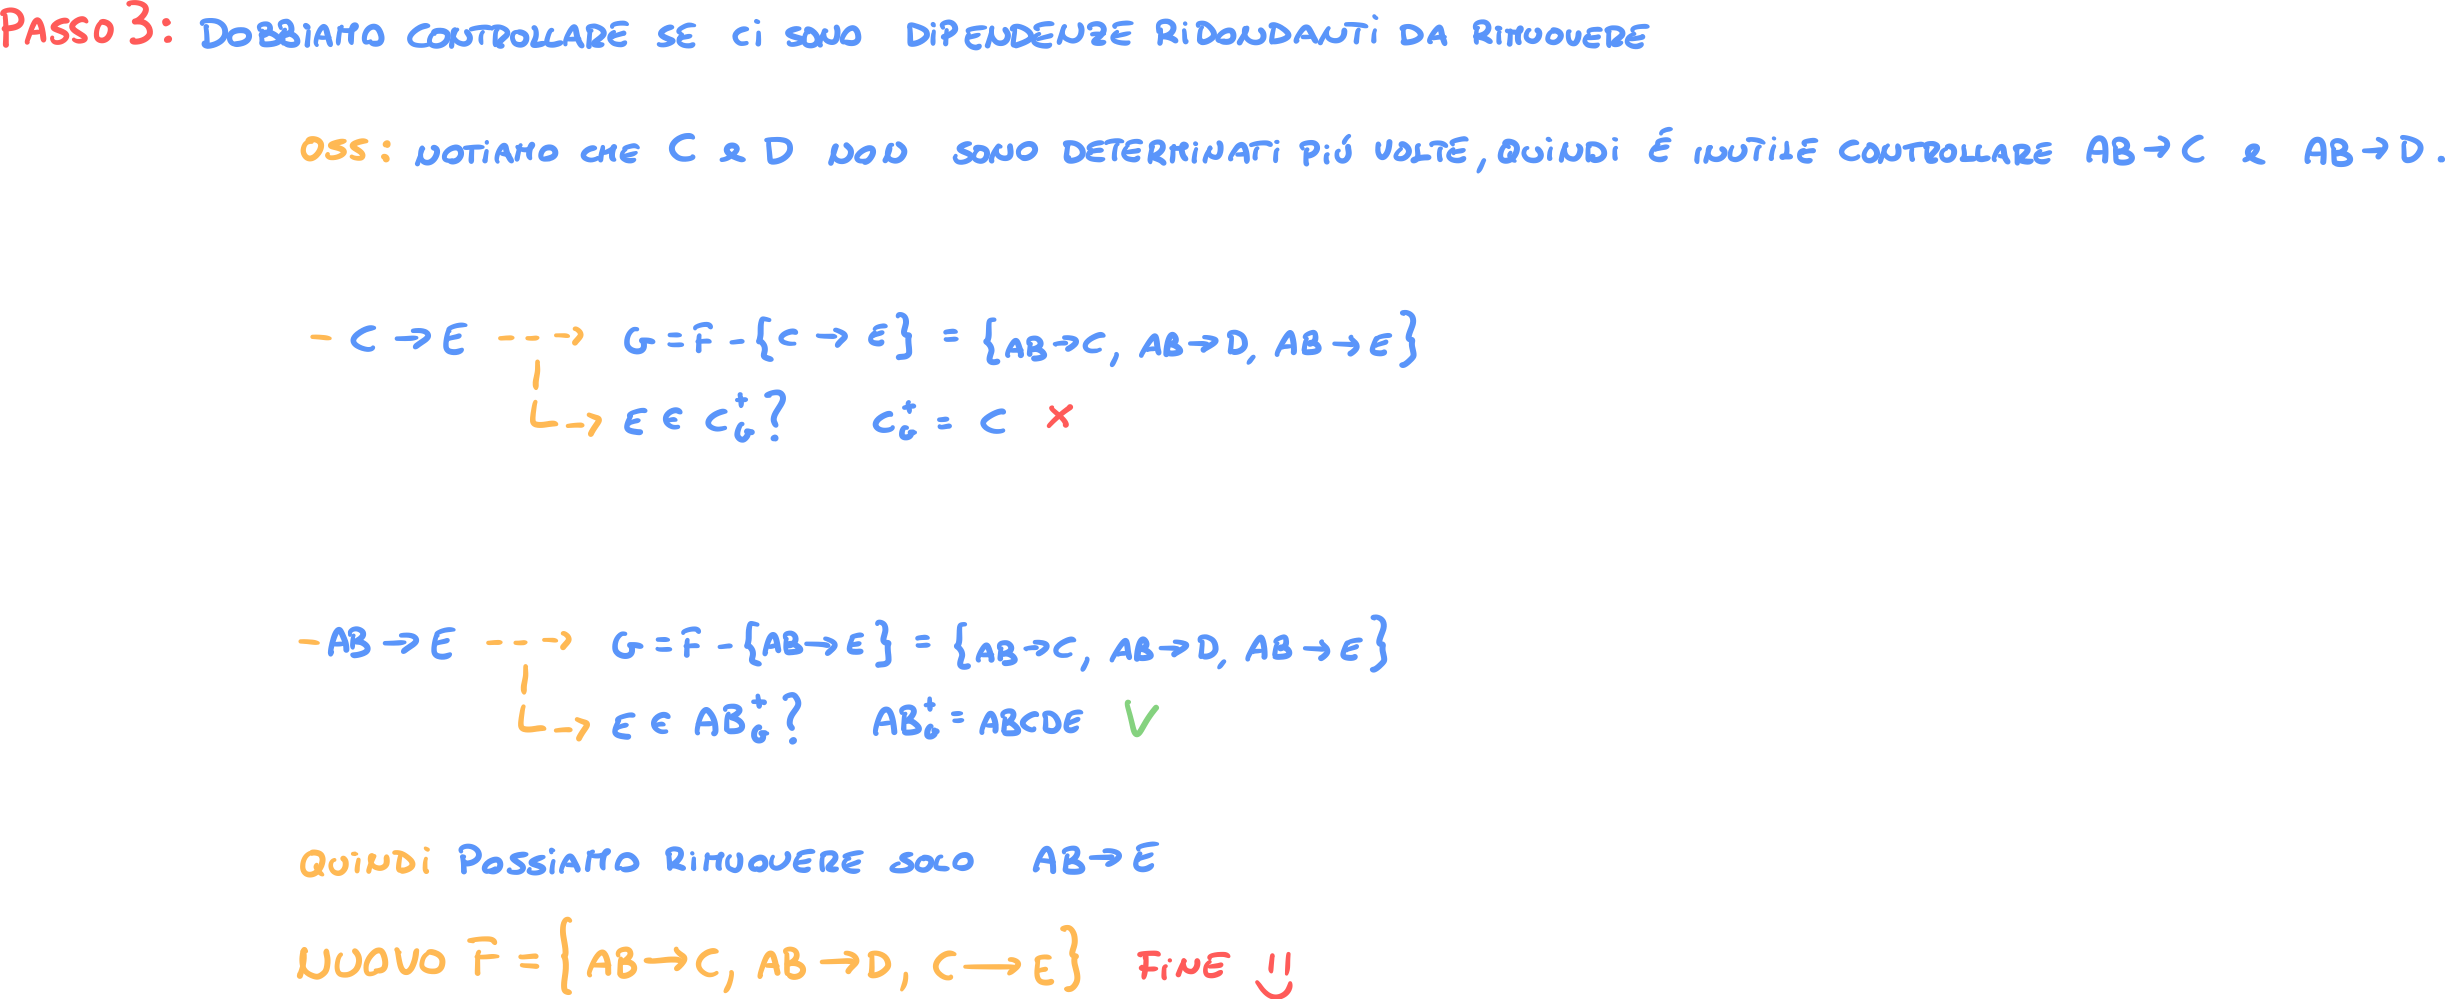 PASSO 3: DOBBIAMO CONTROLLARE SE Ci SONO DiPENDENZE RiDONDANTi DA RIMUOVERE
OSS: NOTiAMO CHE C & D NON SONO DETERMINATI PiÚ VOLTE, QUiNDi É iNUTiLE CONTROLLARE AB→C & AB→D.
- C→E ---> G = F̄ - {C→E} = {AB→C, AB→D, AB→E}
E ∈ C⁺_G? C⁺_G = C ×
- AB→E ---> G = F̄ - {AB→E} = {AB→C, AB→D, AB→E}
E ∈ AB⁺_G? AB⁺_G = ABCDE ✓
QUiNDi POSSiAMO RiMUOVERE SOLO AB→E
NUOVO F̄ = {AB→C, AB→D, C→E} FiNE :)